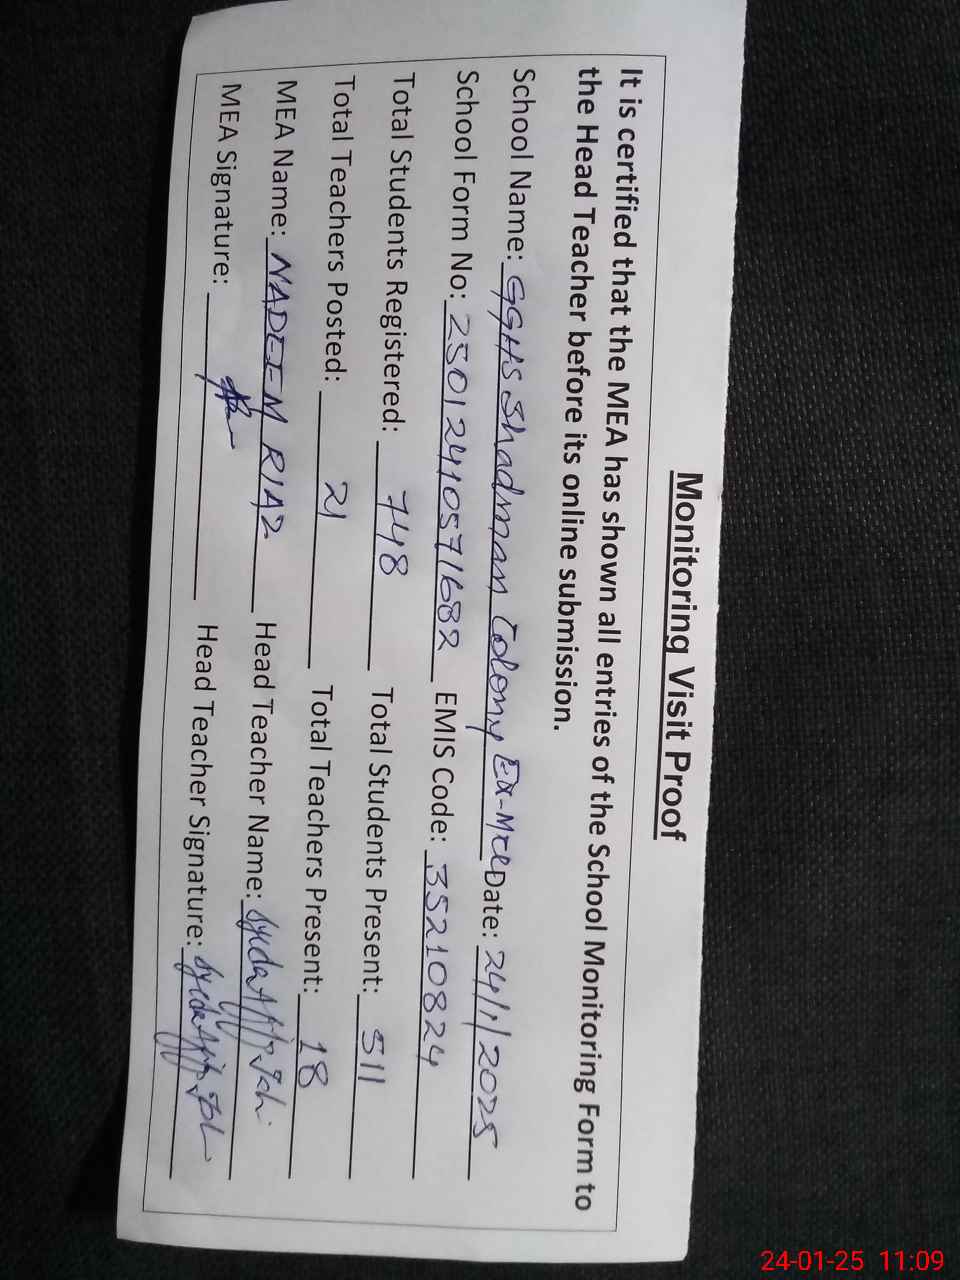 Monitoring Visit Proof
It is certified that the MEA has shown all entries of the School Monitoring Form to
the Head Teacher before its online submission.
School Name: GGHS Shadman Colony Ex-MCL Date: 24/1/2025
School Form No: 25012410571682 EMIS Code: 35210824
Total Students Registered: 748 Total Students Present: 511
Total Teachers Posted: 21 Total Teachers Present: 18
MEA Name: NADEEM RIAZ Head Teacher Name: Syeda
MEA Signature: Head Teacher Signature: Syeda
24-01-25 11:09